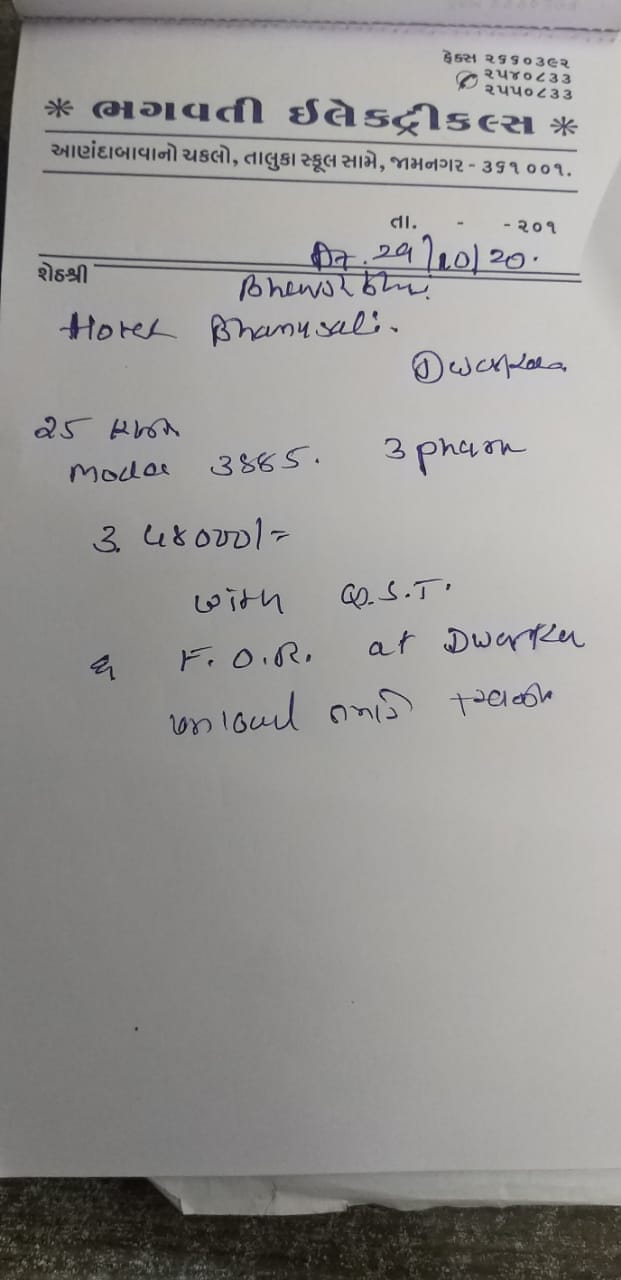 ફેક્સ ૨૬૬૦૩૯૨
૨૫૪૦૮૩૩
૨૫૫૦૮૩૩
* ભગવતી ઈલેક્ટ્રીકલ્સ *
આણંદાબાવાનો ચકલો, તાલુકા સ્કૂલ સામે, જામનગર - ૩૬૧ ૦૦૧.
તા. - - ૨૦૧
Dt. 29/10/20.
શેઠશ્રી
Hotel Bhanusali.
Dwarka
25
Model 3885. 3 phase
with G.S.T.
F.O.R. at Dwarka